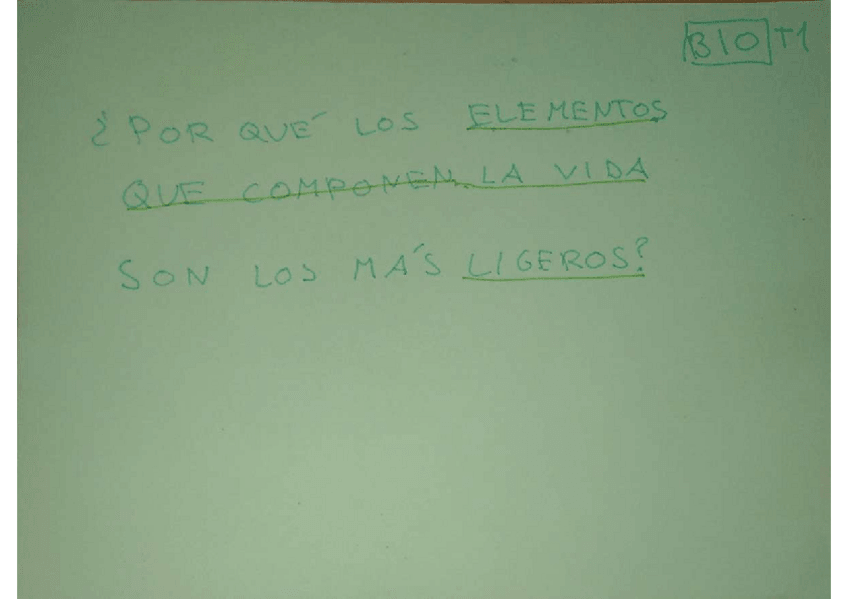 BIO T1
¿POR QUÉ LOS ELEMENTOS
QUE COMPONEN LA VIDA
SON LOS MÁS LIGEROS?